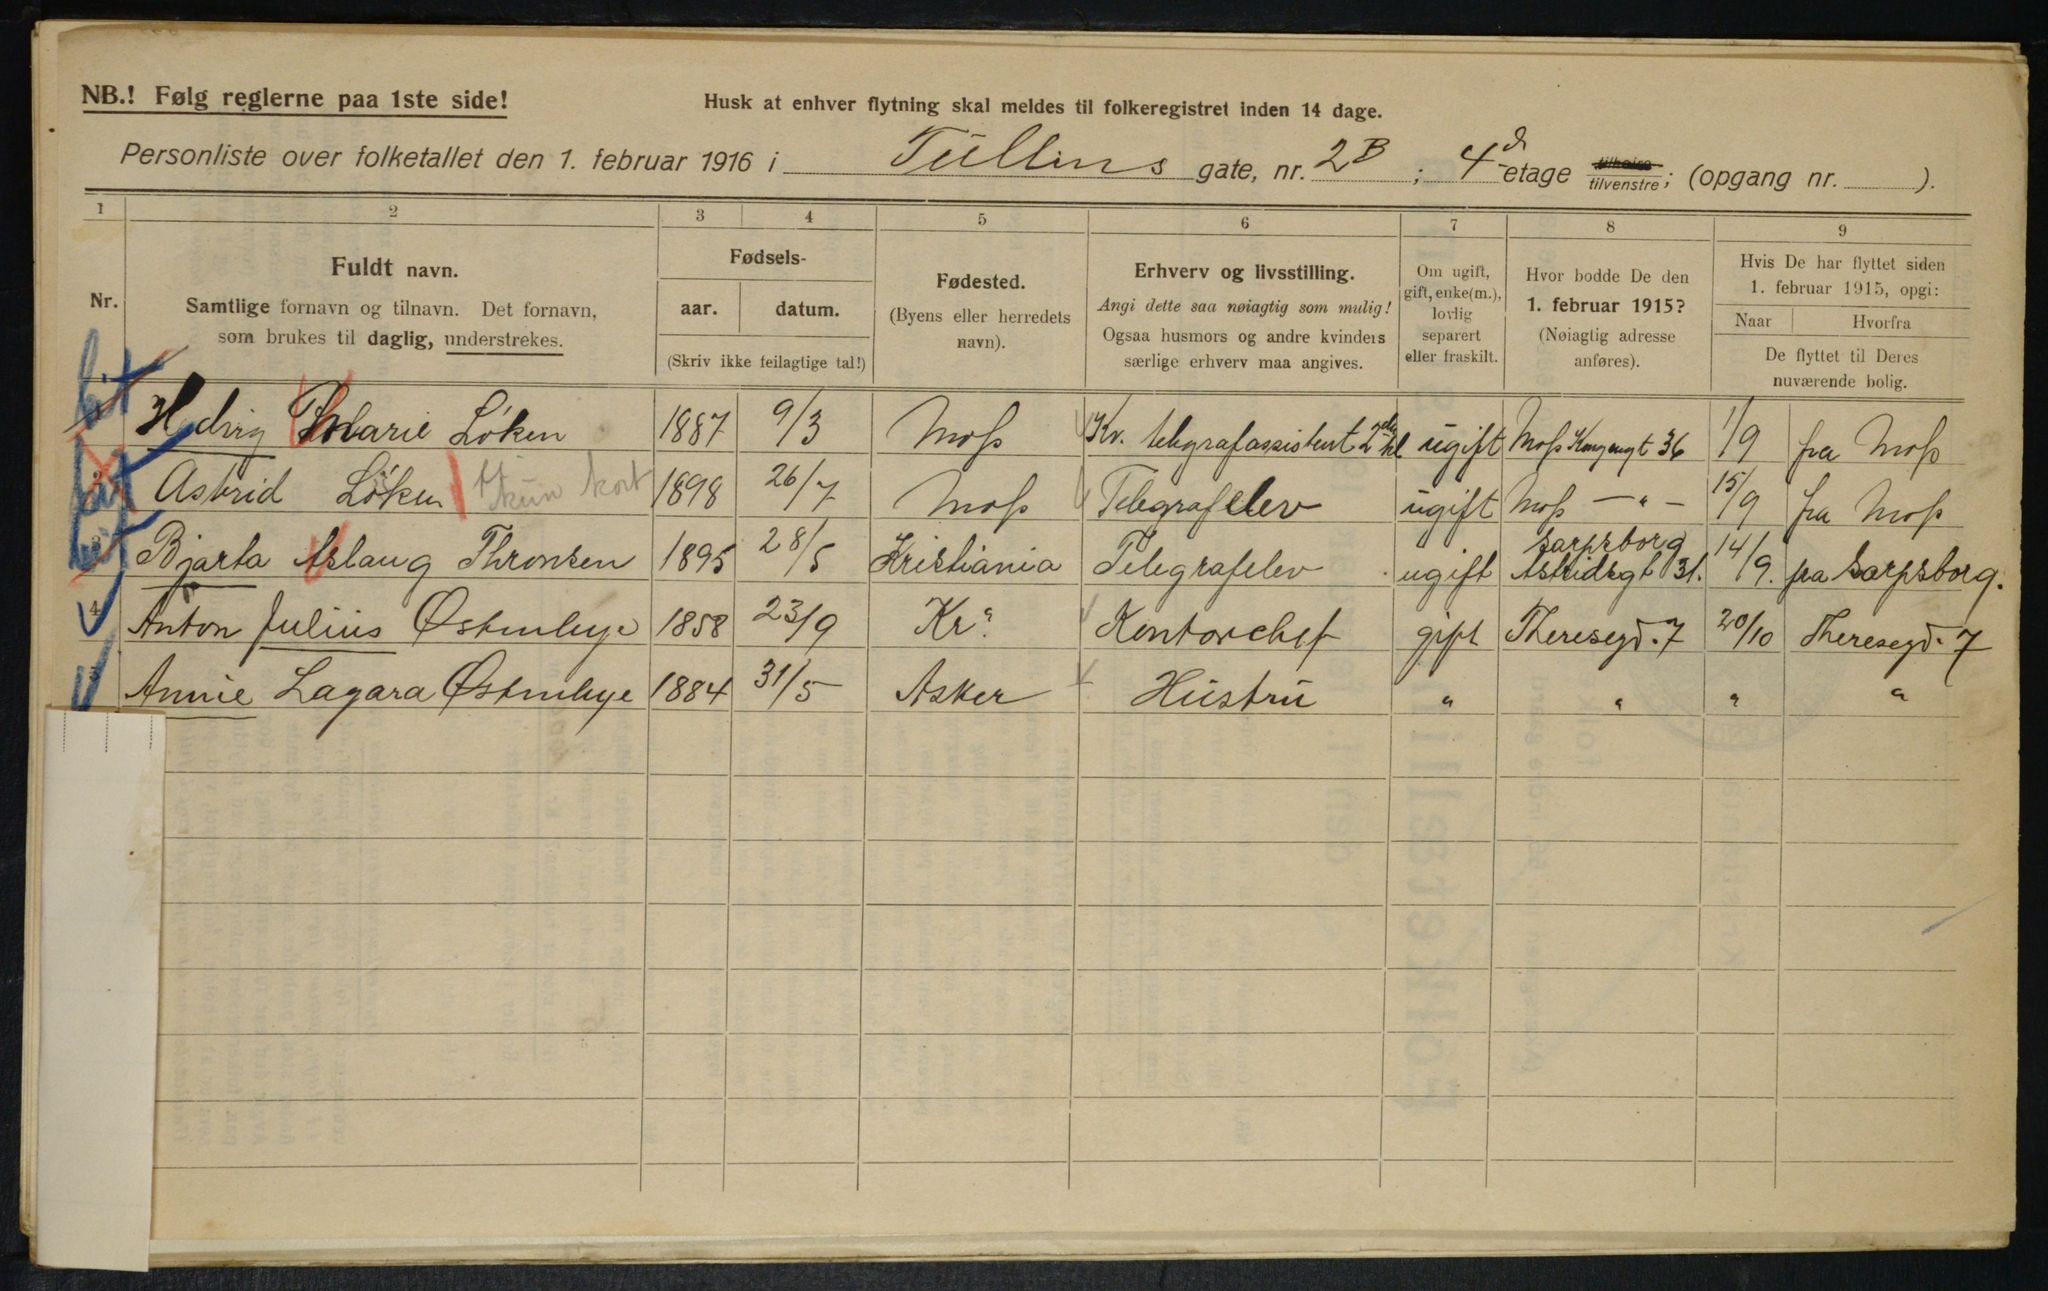 NB.! Følg reglerne paa 1ste side!
Husk at enhver flytning skal meldes til folkeregistret inden 14 dage.
Personliste over folketallet den 1. februar 1916 i Tullins gate, nr. 2B ; 4d etage tilhøire tilvenstre; (opgang nr. ).
1 2 3 4 5 6 7 8 9
Nr.
Fuldt navn.
Samtlige fornavn og tilnavn. Det fornavn,
som brukes til daglig, understrekes.
Fødsels-
aar. datum.
(Skriv ikke feilagtige tal!)
Fødested.
(Byens eller herredets
navn).
Erhverv og livsstilling.
Angi dette saa nøiagtig som mulig!
Ogsaa husmors og andre kvinders
særlige erhverv maa angives.
Om ugift,
gift, enke(m.),
lovlig
separert
eller fraskilt.
Hvor bodde De den
1. februar 1915?
(Nøiagtig adresse
anføres).
Hvis De har flyttet siden
1. februar 1915, opgi:
Naar Hvorfra
De flyttet til Deres
nuværende bolig.
Marie Löken 1887 9/3 Moss Kv. telegrafassistent 2 kl ugift Moss 36 1/9 fra Moss
2 Astrid Löken kun kort 1898 26/7 Moss Telegrafelev ugift Moss — " — 15/9 fra Moss
3 Bjarta Aslaug Thronsen 1895 28/5 Kristiania Telegrafelev ugift Sarpsborg Astridsgt 31. 14/9. fra Sarpsborg.
4 Anton Julius Østenbye 1858 23/9 Kra. Kontorchef gift Theresegd. 7 20/10 Theresegd. 7
5 Annie Lagara Østenbye 1884 31/5 Asker Hustru " " " "